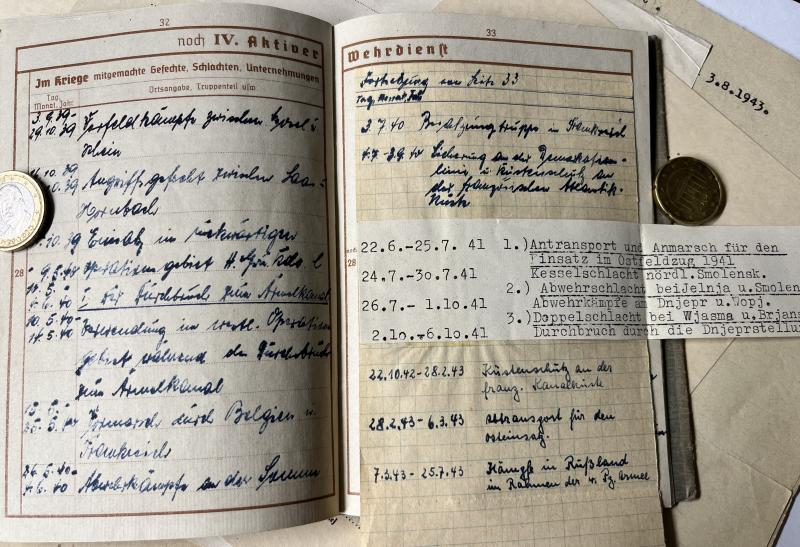 32
noch IV. Aktiver
Im Kriege mitgemachte Gefechte, Schlachten, Unternehmungen
Tag, Monat, Jahr
Ortsangabe, Truppenteil usw
3.9.39-
29.10.39 Vorfeldkämpfe zwischen u.
Rhein
10.39
10.39 Angriffsgefecht zwischen Saar u.
Hornbach
10.39 Einsatz im rückwärtigen
Operationsgebiet
Durchbruch zum Ärmelkanal
10.5.40-
Verwendung im westl. Operations
gebiet während des Durchbruchs
zum Ärmelkanal
Vormarsch durch Belgien u.
Frankreich
40 Abwehrkämpfe an der Somme
28
33
Wehrdienst
Fortsetzung von Seite 33
Tag, Monat, Jahr
3.7.40 Besatzungstruppe in Frankreich
Sicherung an der Demarkations-
linie u. Küstenschutz an
der französischen Atlantik-
Küste
28
22.6.-25.7. 41 1.) Antransport und Anmarsch für den
Einsatz im Ostfeldzug 1941
24.7.-30.7.41 Kesselschlacht nördl.Smolensk.
2.) Abwehrschlacht beiJelnja u.Smolen
26.7.- 1.10.41 Abwehrkämpfe am Dnjepr u.Wopj.
3.) Doppelschlacht bei Wjasma u.Brjans
2.10.-6.10.41 Durchbruch durch die Dnjeprstellu
22.10.42-28.2.43 Küstenschutz an der
franz. Kanalküste
28.2.43- 6.3.43 Abtransport für den
Osteinsatz.
7.3.43- 25.7.43 Kämpfe in Rußland
im Rahmen der 4. Pz. Armee
3.8.1943.